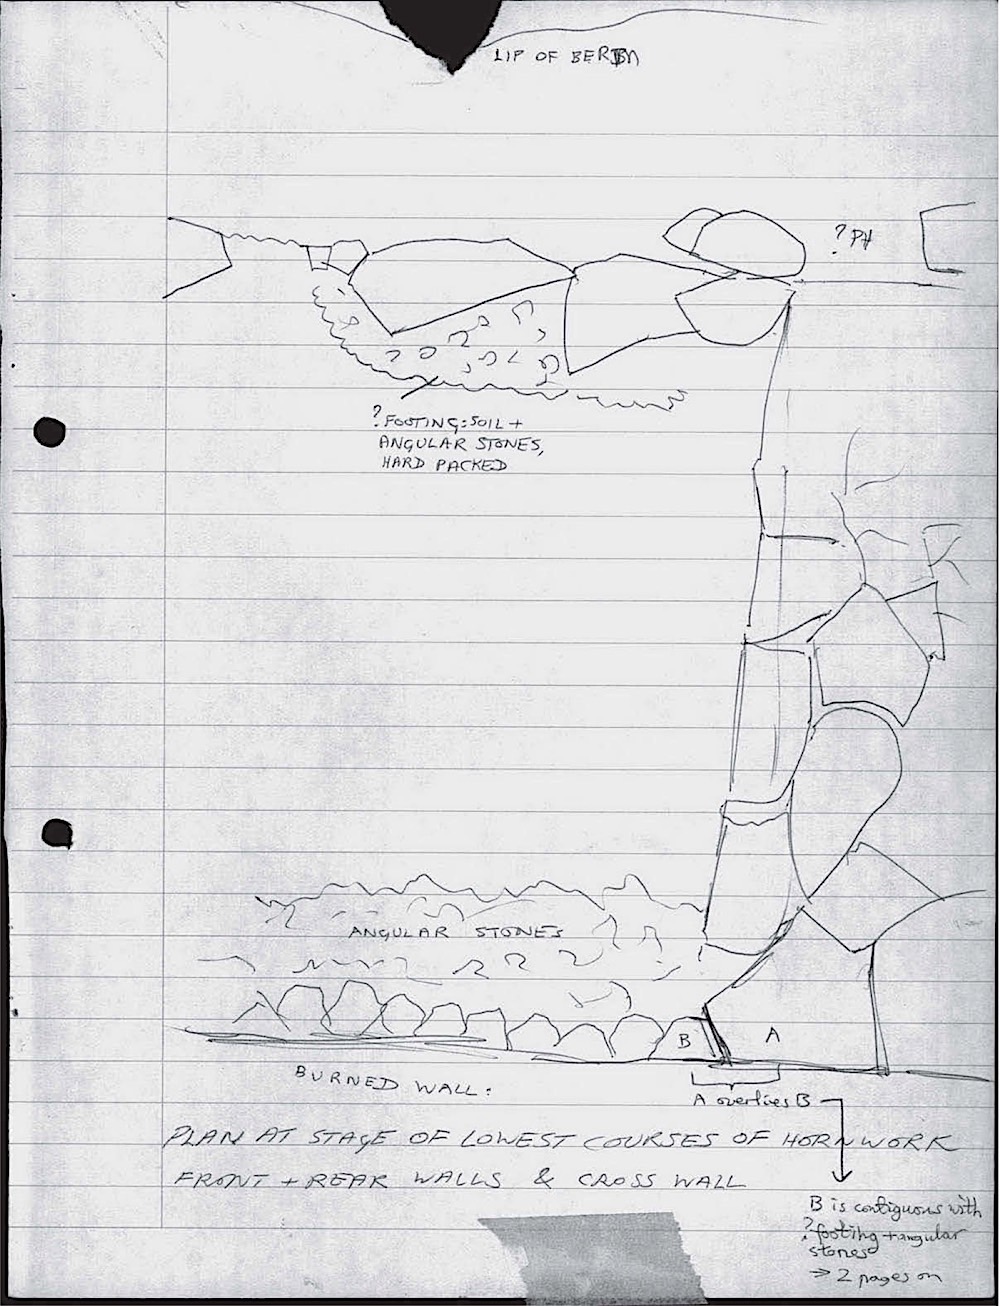 LIP OF BERM
? PH
? FOOTING: SOIL +
ANGULAR STONES,
HARD PACKED
ANGULAR STONES
B
A
BURNED WALL:
A overlies B
PLAN AT STAGE OF LOWEST COURSES OF HORNWORK
FRONT + REAR WALLS & CROSS WALL
B is contiguous with
? footing + angular
stones
→ 2 pages on